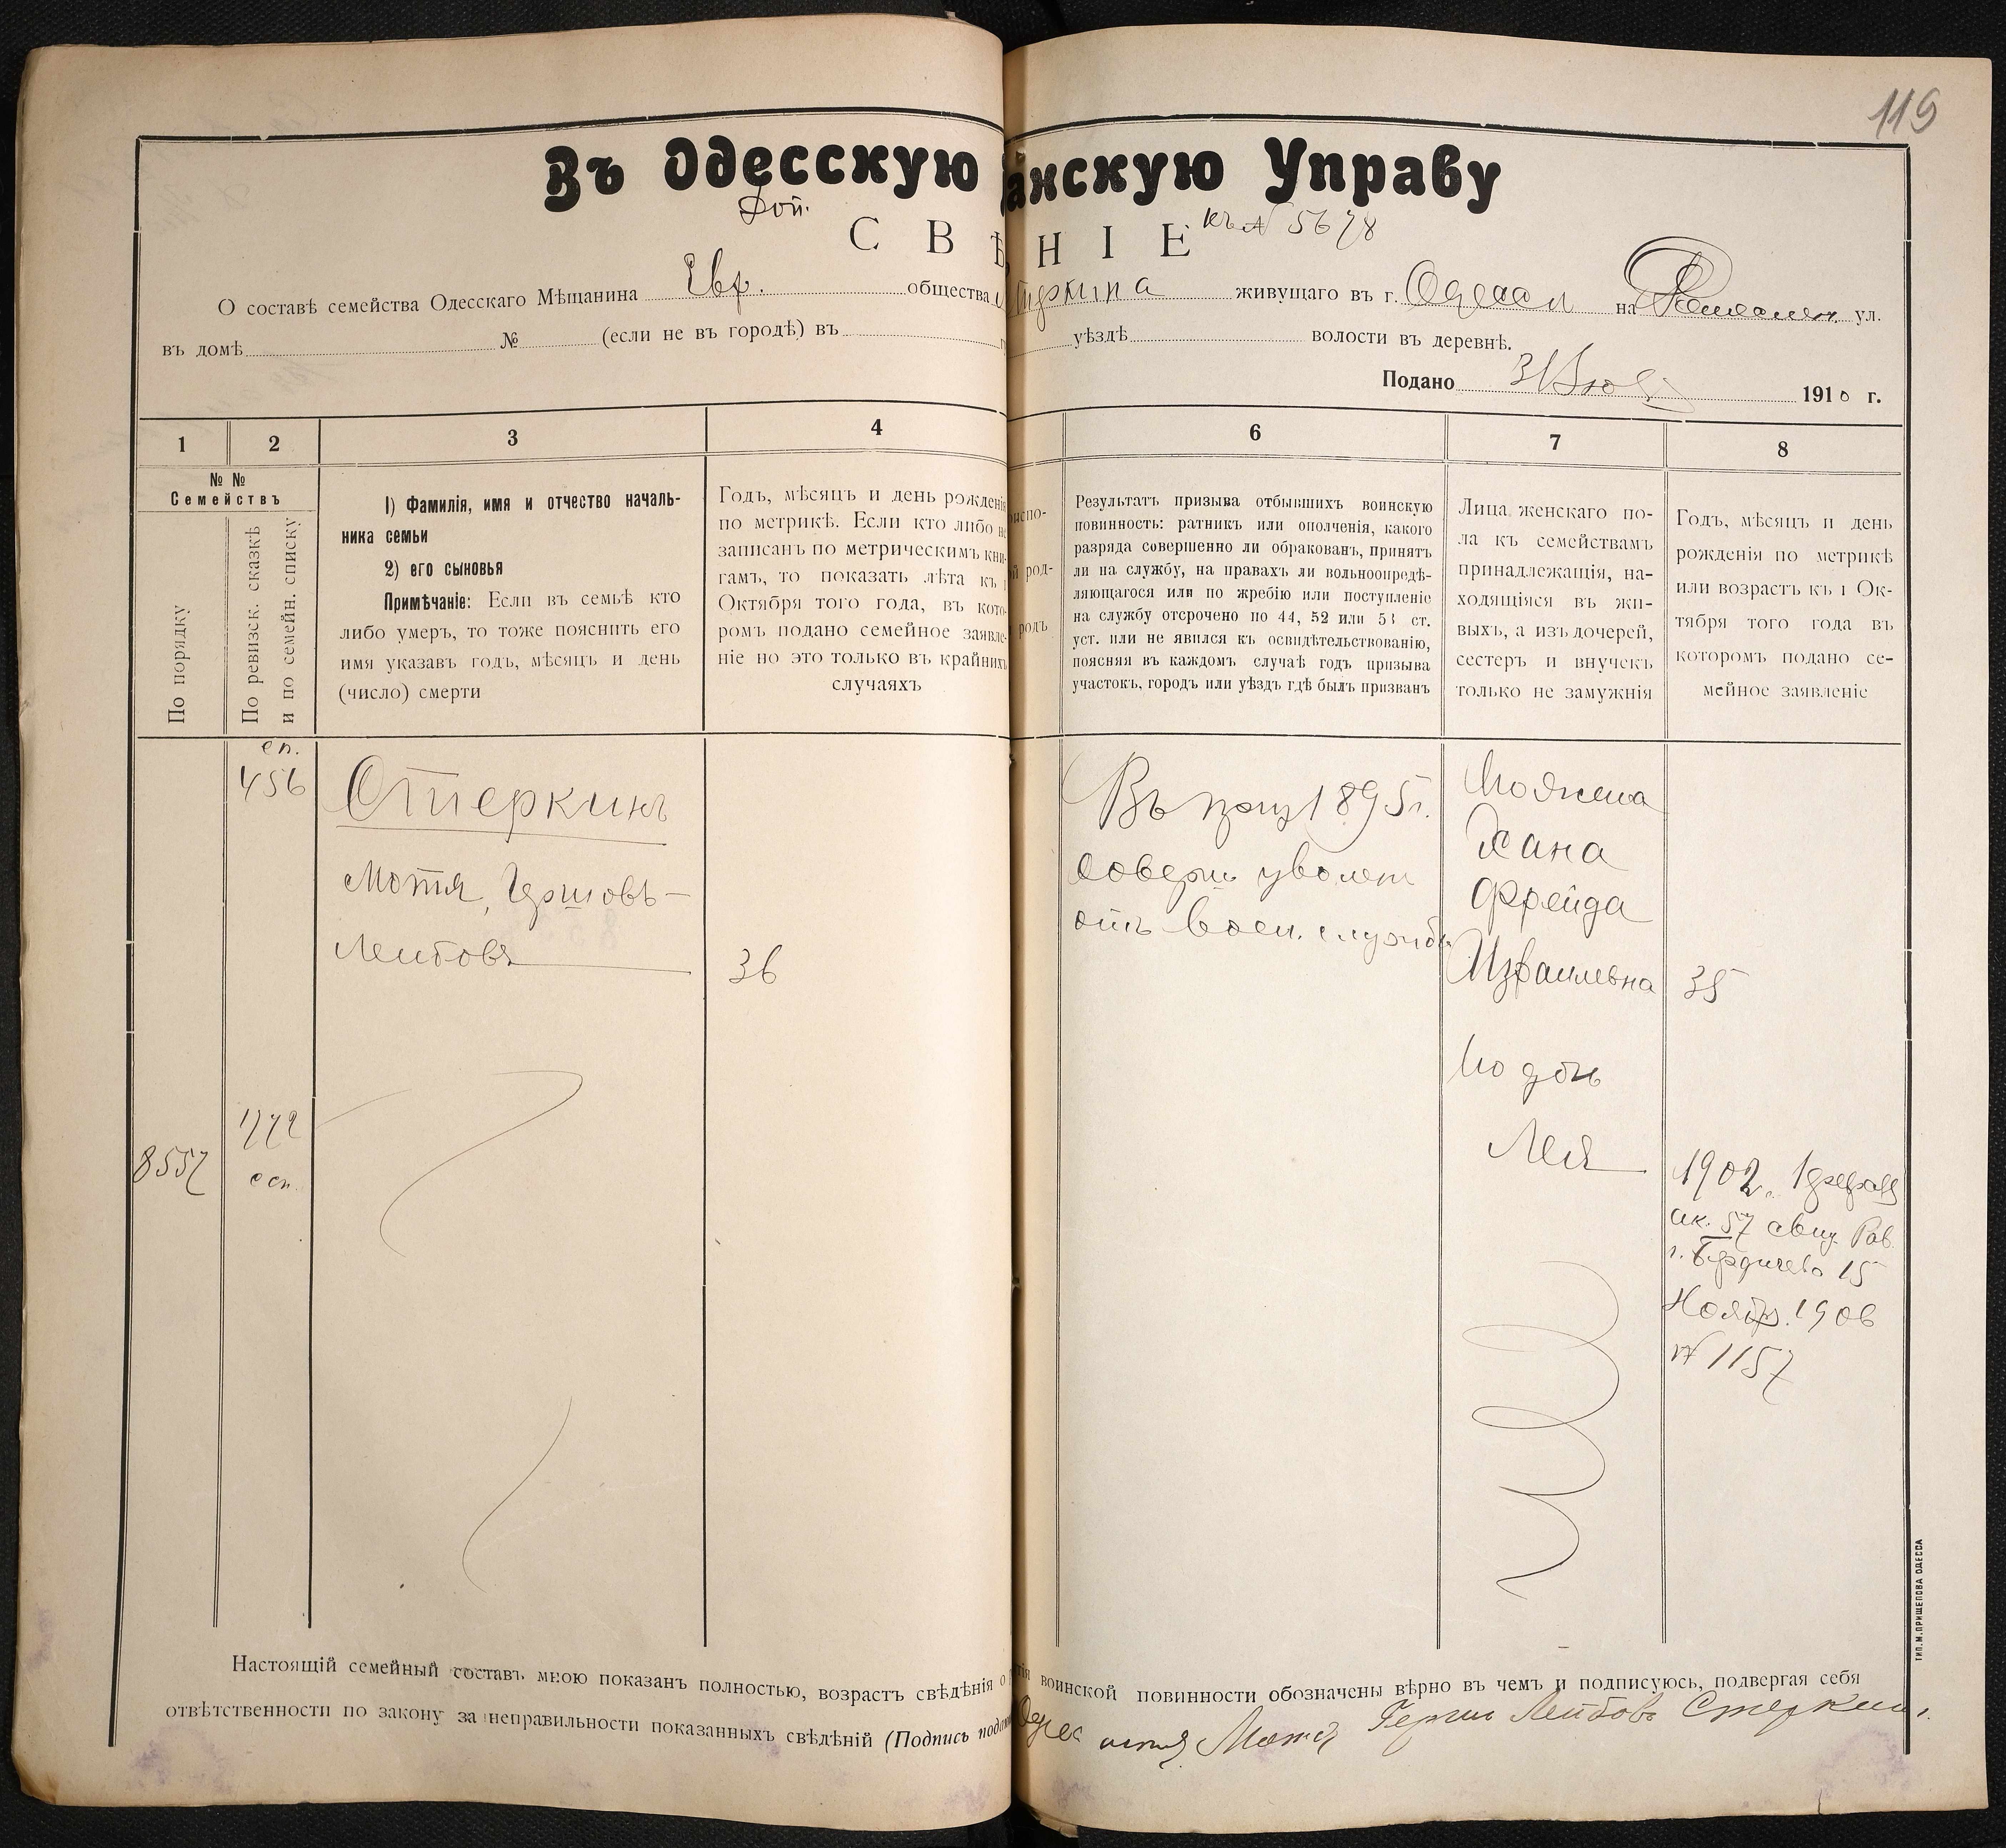 119
Въ Одесскую анскую Управу
Доп. къ № 5678
С В Ѣ Н І Е
О составѣ семейства Одесскаго Мѣщанина Евр. общества живущаго въ г. Одессѣ на ул.
въ домѣ № (если не въ городѣ) въ уѣздѣ волости въ деревнѣ.
Подано 1910 г.
1 2 3 4 6 7 8
№ №
Семействъ
По порядку
По ревизск. сказкѣ
и по семейн. списку
1) Фамилія, имя и отчество началь-
ника семьи
2) его сыновья
Примѣчаніе: Если въ семьѣ кто
либо умеръ, то тоже пояснить его
имя указавъ годъ, мѣсяцъ и день
(число) смерти
Годъ, мѣсяцъ и день рожденія
по метрикѣ. Если кто либо не
записанъ по метрическимъ кни-
гамъ, то показать лѣта къ 1
Октября того года, въ кото-
ромъ подано семейное заявле-
ніе но это только въ крайнихъ
случаяхъ
испо-
й род-
родъ
Результатъ призыва отбывшихъ воинскую
повинность: ратникъ или ополченія, какого
разряда совершенно ли обракованъ, принятъ
ли на службу, на правахъ ли вольноопредѣ-
ляющагося или по жребію или поступленіе
на службу отсрочено по 44, 52 или 53 ст.
уст. или не явился къ освидѣтельствованію,
поясняя въ каждомъ случаѣ годъ призыва
участокъ, городъ или уѣздъ гдѣ былъ призванъ
Лица женскаго по-
ла къ семействамъ
принадлежащія, на-
ходящіяся въ жи-
выхъ, а изъ дочерей,
сестеръ и внучекъ
только не замужнія
Годъ, мѣсяцъ и день
рожденія по метрикѣ
или возрастъ къ 1 Ок-
тября того года въ
которомъ подано се-
мейное заявленіе
сп.
456
Стеркинъ
Мотя, Гершовъ-
Лейбовъ 36
Въ приз 1895 г.
соверш уволен
отъ воен. службы
Его жена
Хана
Фрейда
Израилевна 35
Его дочь
Лея
1772
сп.
8557
1902. 1 феврал
ак. 57 свид. Рав.
г. Бердичева 15
Ноябр. 1906
№ 1157
Настоящій семейный составъ мною показанъ полностью, возрастъ свѣдѣнія о воинской повинности обозначены вѣрно въ чемъ и подписуюсь, подвергая себя
отвѣтственности по закону за неправильности показанныхъ свѣдѣній (Подпись Мотя Герш Лейбовъ Стеркинъ
ТИП. М. ПРИЩЕПОВА ОДЕССА